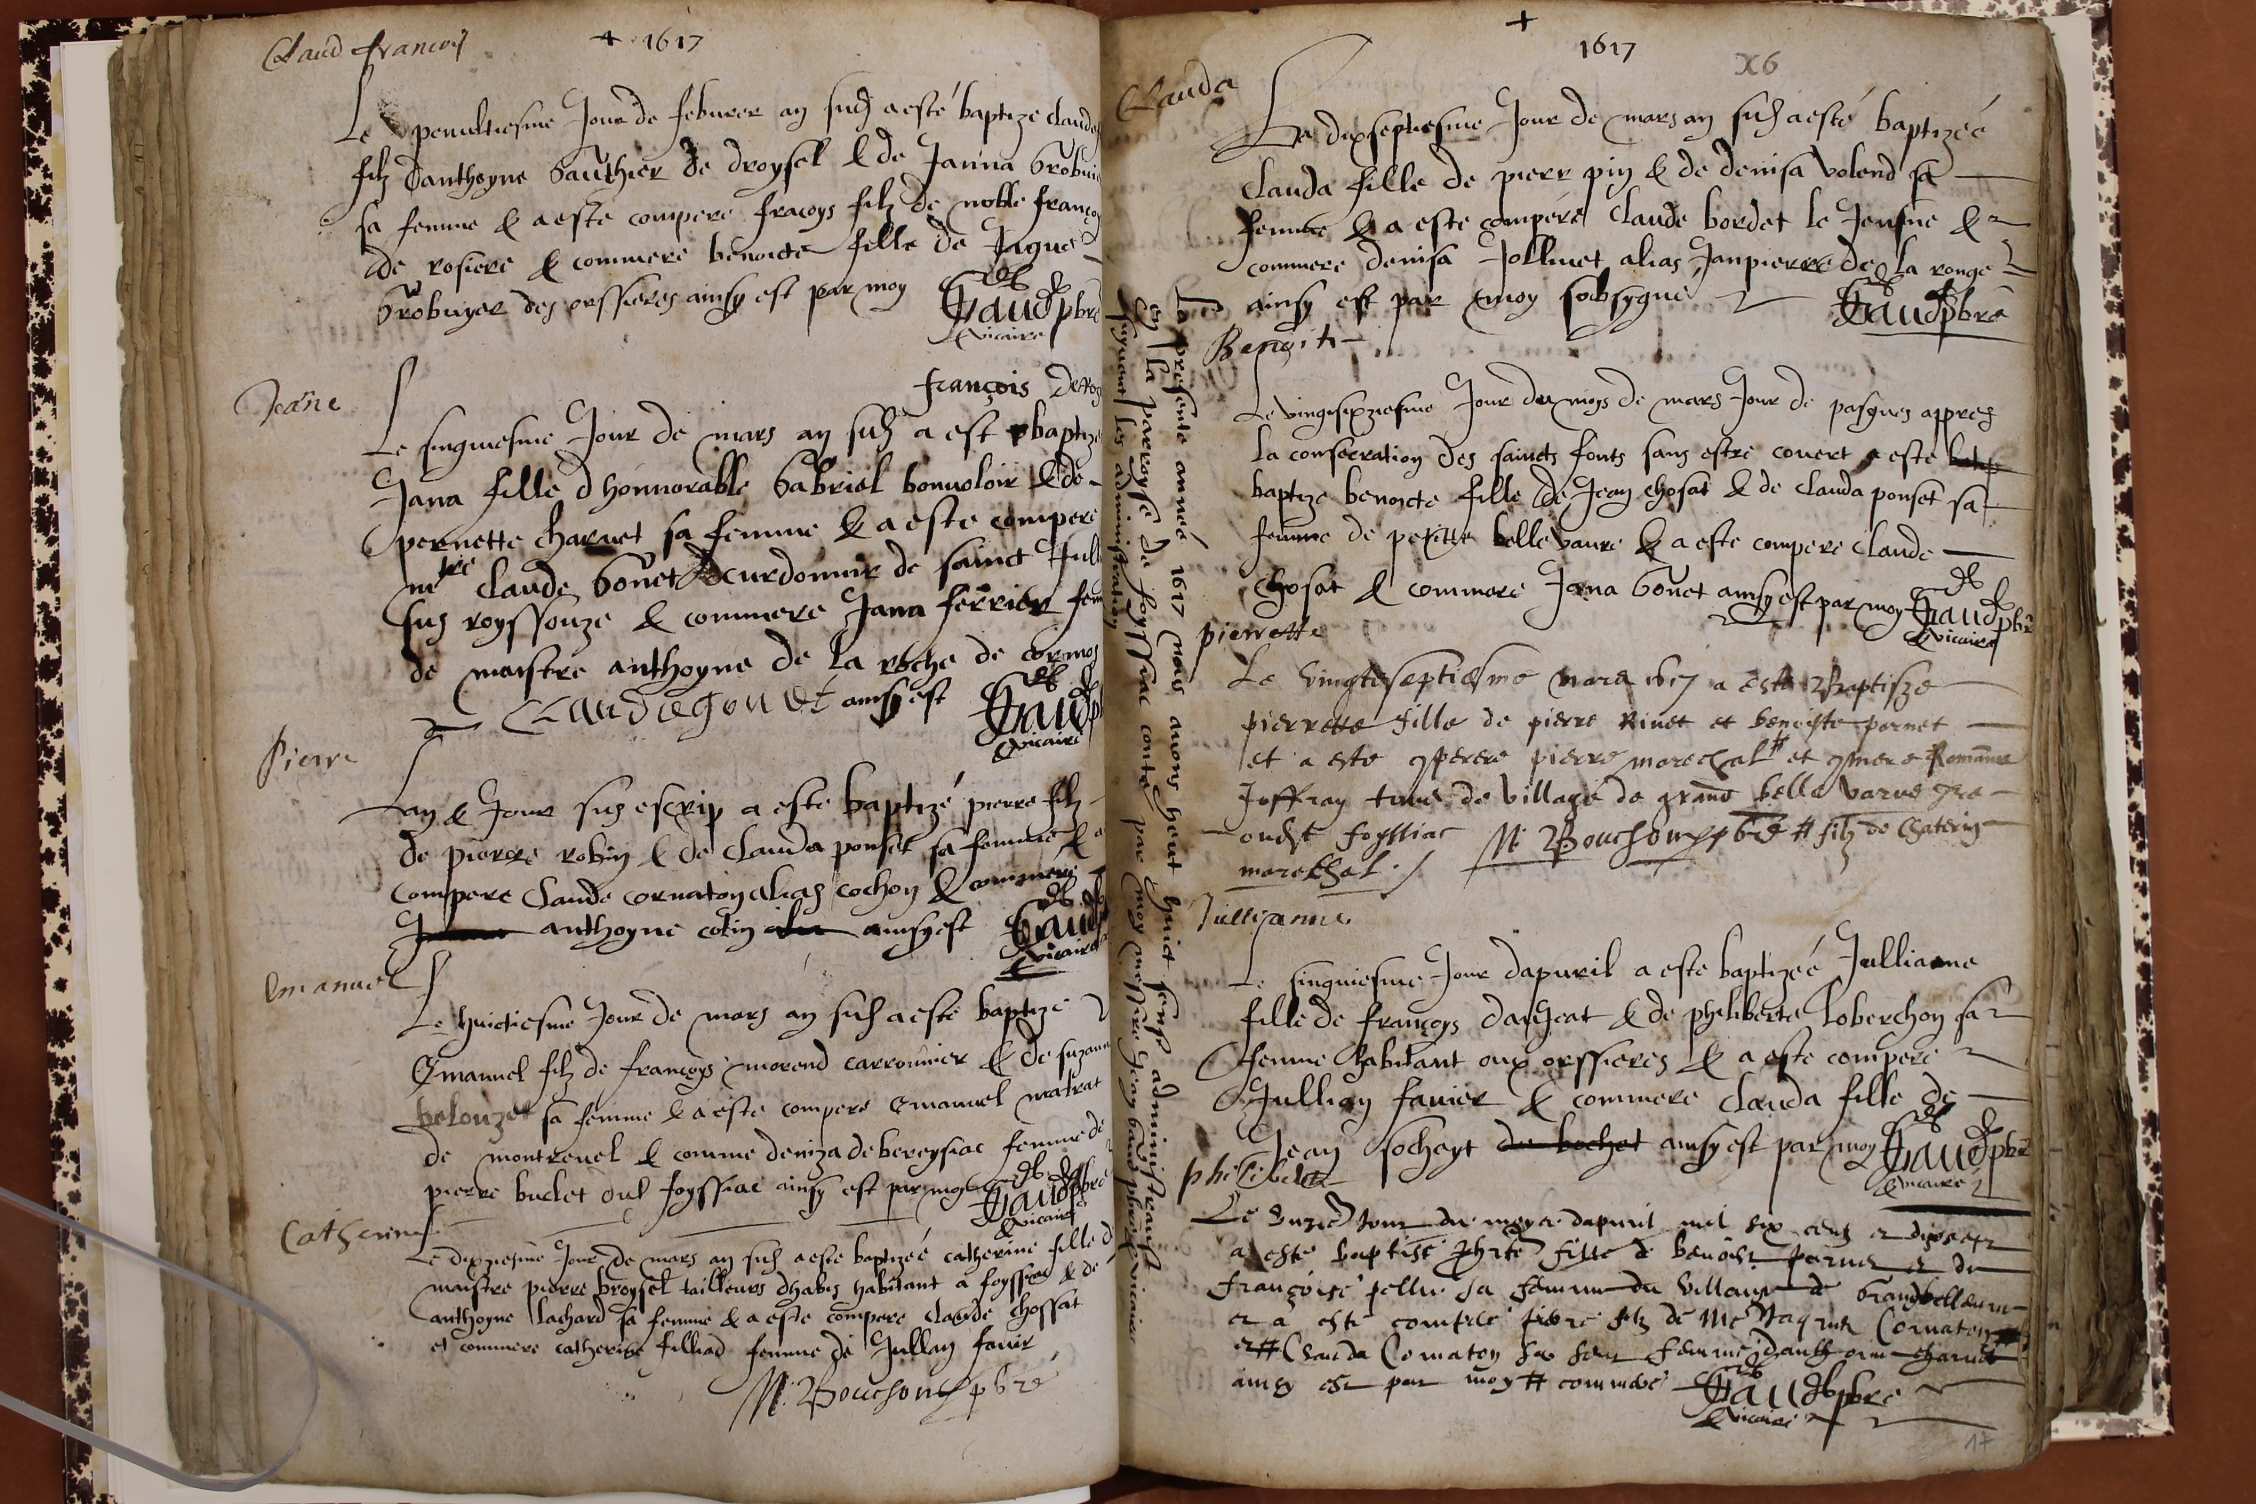 Claud francoys
+ 1617
Le penultiesme Jour de feburer an susd a esté baptize claude
filz danthoyne Gauthier de droysel & de Janna Grobuie
sa femme & a este compere fracoys filz de noble françoy
de rosiere & commere benoicte fille de Jugue
Grobuyer des orssieres ainsy est par moy
Gaud pbre
vicaire
françois de ros
Jeãne
Le sinquiesme Jour de mars an susd a est baptize
Jana fille d honnorable Gabriel bonuoloir & de
pernette charuet sa femme & a este compere
mtre Claude Gonet curdonnir de sainct Jull
sus royssouze & commere Jana ferrier fem
de maistre anthoyne de la roche de cormos
Claude gonet ainsy est
Gaud p
vicaire
Pierre
Lan & Jour sus escrip a este baptizé pierre filz
de pierre robin & de Clauda ponset sa femme & a
compere Claude cornaton alias cochon & commere
anthoyne cotin ainsy est
Gaud
vicaire
Emanuel
Le huictiesme Jour de mars an susd a esté baptize
Emanuel filz de françoys morend carronnier & de suzann
belouzet sa femme & a este compere Emanuel matrat
de montreuel & comme deniza de bereysiac femme de
pierre buclet dud foyssiac ainsy est par moy
Gaud pbre
vicaire
Catherine
Le dixziesme Jour de mars an susd a este baptizée catherine fille d
maistre pierre broysel tailleurs dhabis habitant a foyssiac & de
anthoyne lachard sa femme & a este compere claude chossat
et commere catherine filliad femme de Jullian favir
M. Bouchon pbre
La presente année 1617 nous auons heut huict sens administrant
en la parroysse de foyssiac conte par moy messire Jean baud pbre & vicaire
suyuent les administration
+
1617
X6
Clauda
Le dixseptiesme Jour de mars an susd a esté baptizée
Clauda fille de pierr pin & de denisa volend sa
femme & a este compere Claude bordet le Jeusne &
commere denisa Jollivet alias Janpierre de la ronge
ainsy est par moy sobsygne
Gaud pbre
Benoite
Le vingtsixziesme Jour du moys de mars Jour de pasques appres
la conserration des saincts fonts sans estre couert a este batp
baptize benoicte fille de Jean chosat & de Clauda ponset sa
femme de petitte belle vaure & a este compere Claude
chosat & commere Jana Gonet ainsy est par moy Gaud pbr
vicaire
pierrette
Le vingteseptiesme mars 1617 a este Baptisze
pierrette fille de pierre Rivet et benoiste pernet
et a este 9perere pierre marechal # et 9mere Romanne
Joffray tous de village de grand belle varve
foyssiac M Bouchon pbre # filz de Caterin
marechal
Jullianne
Le sinquiesme Jour dapuril a este baptizeé Jullianne
fille de françoys danJeat & de philiberte loberchon sa
femme habitant aux orssieres & a este compere
Jullian favier & commere clauda fille de
Jean sochayt du bochet ainsy est par moy Gaud pbr
vicaire
philiberte
Le Jour du moys dapuril mil six cens et dixsept
a este baptise phrte fille de benoist pernet et de
françoise pellu sa femme du village de Grandbellevavre
et a este compere pierre filz de Me Jaques Cornaton
et # Clauda Cornaton sa seur femme danthoine charuet
ainsy est par moy # commere Gaud pbre
vicaire
17